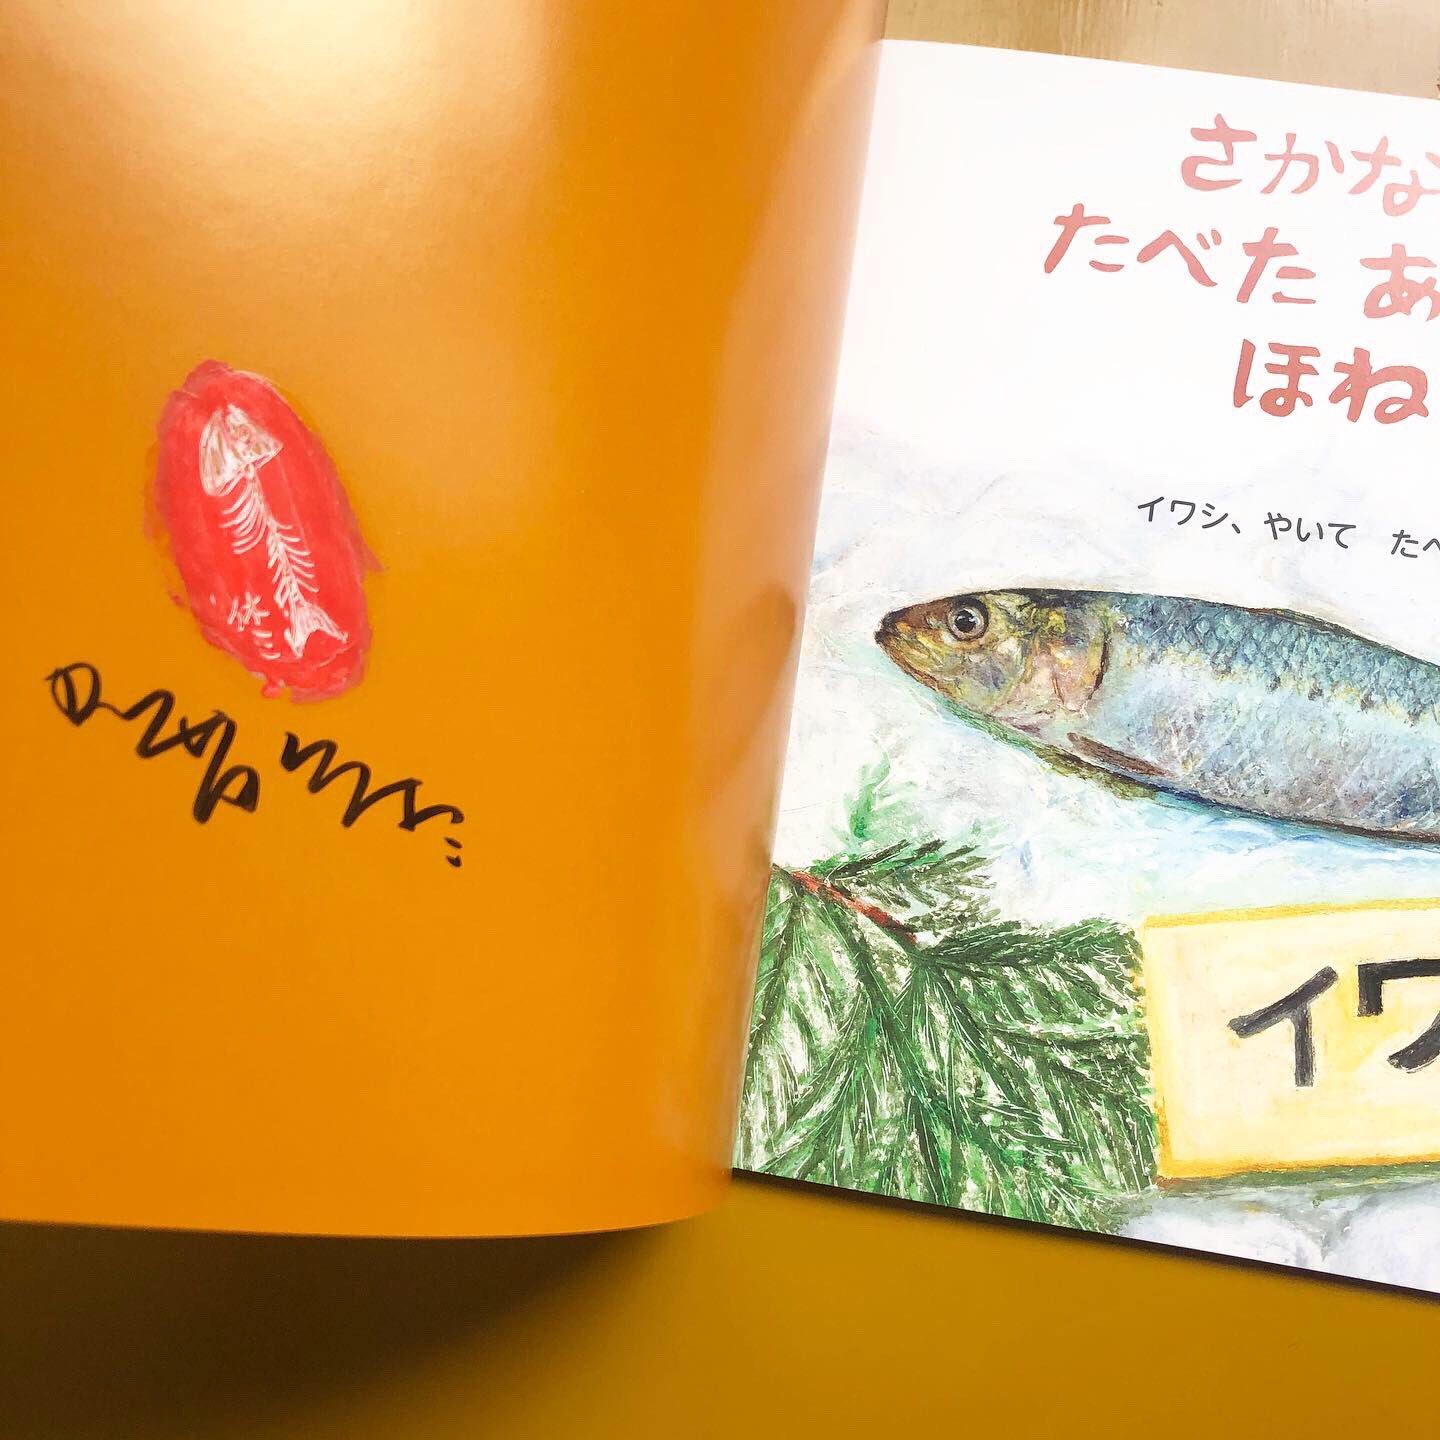 休二
さかな
たべた あ
ほね
イワシ、やいて たべ
イワ